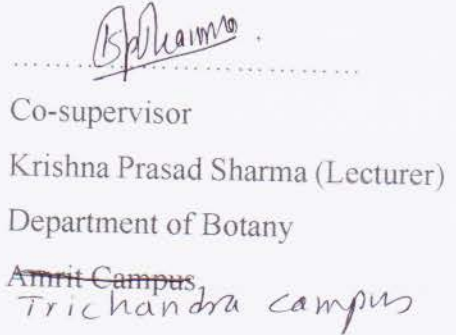 ....................................
Co-supervisor
Krishna Prasad Sharma (Lecturer)
Department of Botany
Amrit Campus,
Trichandra campus